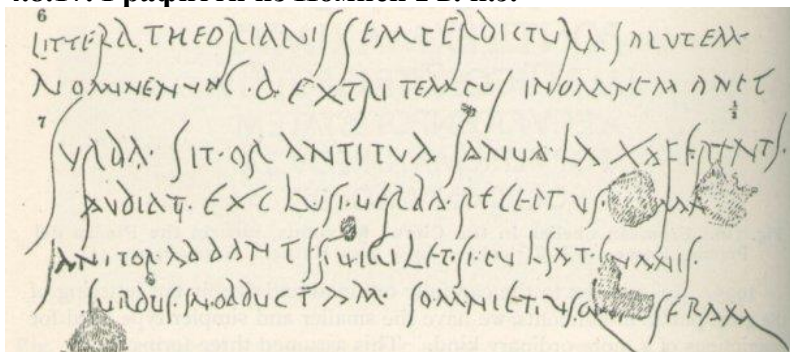 6
LITTERA. THEORIANIS SEMPER DICTVRA SALVTEM
NOMINE NVNC. DEXTRI TEMPVS IN OMNEM MANET
7
SVRDA. SIT. ORANTI TVA IANVA. LAXA FERENTI.
AVDIAT. EXCLVSI. VERBA. RECEPTVS.
IANITOR AD DANTES VIGILET. SI PVLSAT. INANIS.
SVRDVS. IN OBDVCTAM. SOMNIET. VSQVE SERAM